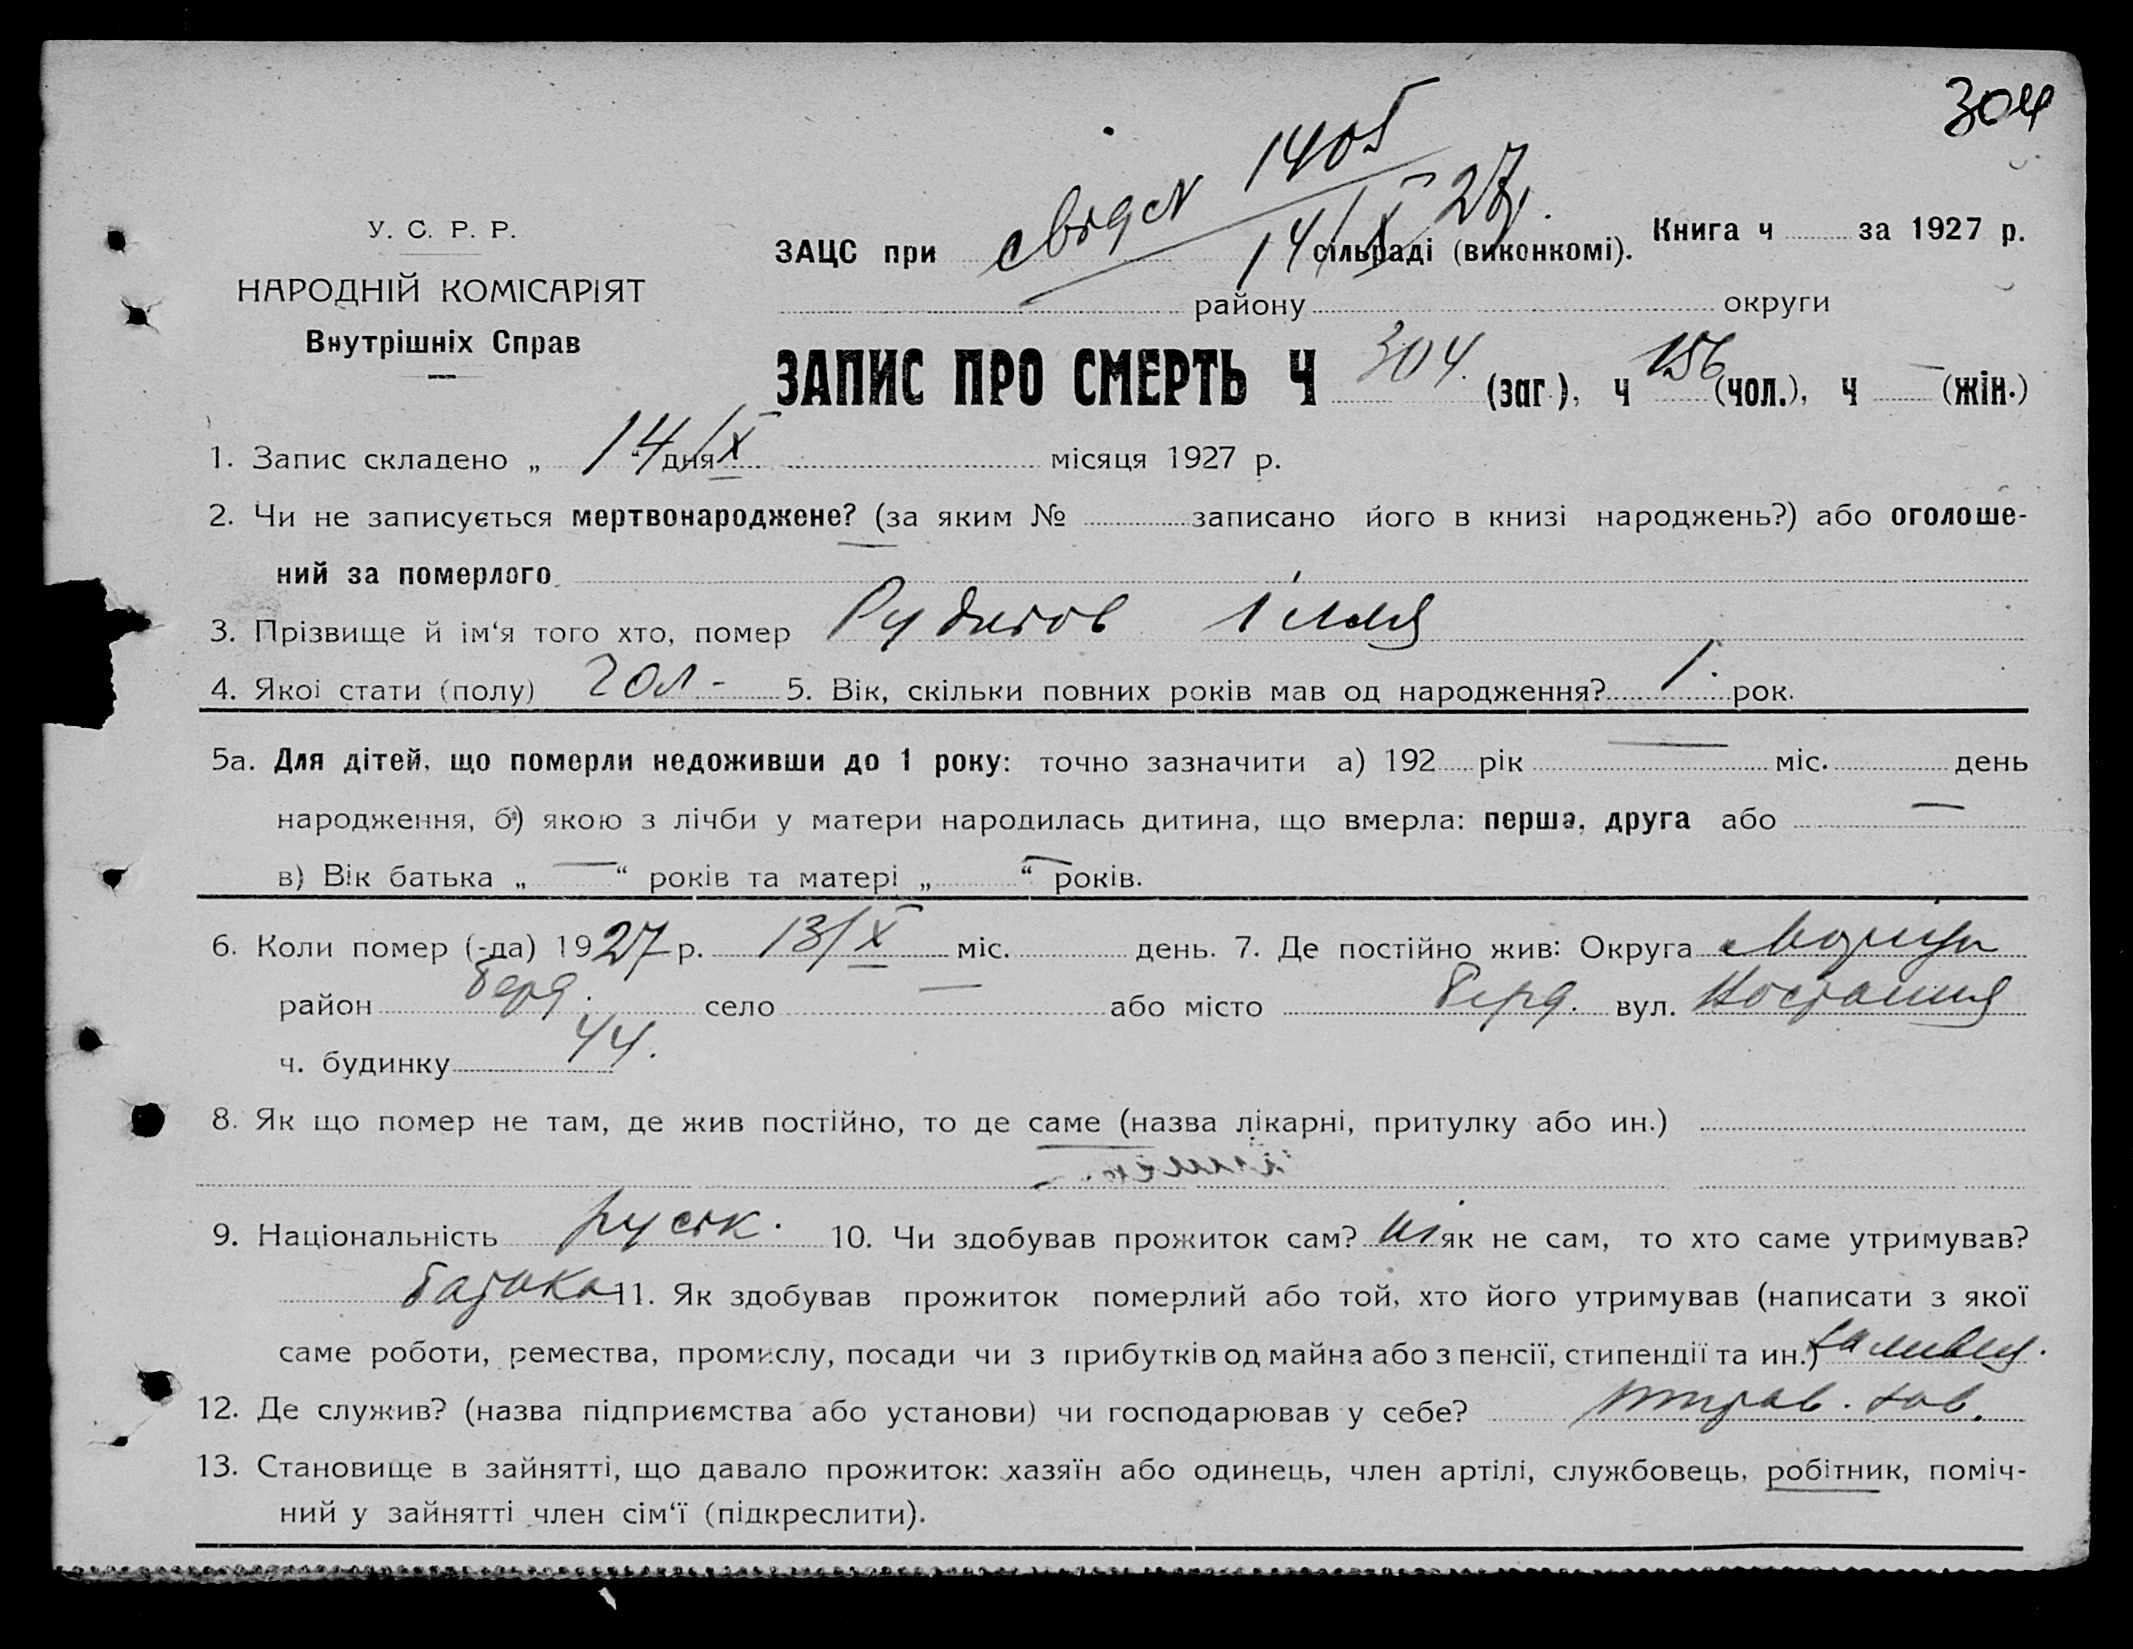 304
У. С. Р. Р.
НАРОДНІЙ КОМІСАРІЯТ
Внутрішніх Справ
свід N 1405
14/X 27 р.
ЗАЦС при сільраді (виконкомі). Книга ч за 1927 р.
району округи
ЗАПИС ПРО СМЕРТЬ Ч 304. (заг.), ч 156 (чол.), ч — (жін.)
1. Запис складено „ 14 “ дня X місяця 1927 р.
2. Чи не записується мертвонароджене? (за яким № записано його в книзі народжень?) або оголоше-
ний за померлого —
3. Прізвище й ім‘я того хто, помер Ілля
4. Якої стати (полу) чол - 5. Вік, скільки повних років мав од народження? 1 рок.
5а. Для дітей, що померли недоживши до 1 року: точно зазначити а) 192 рік — міс. день
народження, б) якою з лічби у матери народилась дитина, що вмерла: перша, друга або —
в) Вік батька „ — “ років та матері „ — “ років.
6. Коли помер (-да) 1927 р. 13/X міс. день. 7. Де постійно жив: Округа
район Берд. село — або місто Берд. вул.
ч. будинку 44.
8. Як що помер не там, де жив постійно, то де саме (назва лікарні, притулку або ин.) —
9. Національність руськ. 10. Чи здобував прожиток сам? ні як не сам, то хто саме утримував?
батько 11. Як здобував прожиток померлий або той, хто його утримував (написати з якої
саме роботи, ремества, промислу, посади чи з прибутків од майна або з пенсії, стипендії та ин.)
12. Де служив? (назва підприємства або установи) чи господарював у себе?
13. Становище в зайнятті, що давало прожиток: хазяїн або одинець, член артілі, службовець, робітник, поміч-
ний у зайнятті член сім‘ї (підкреслити).